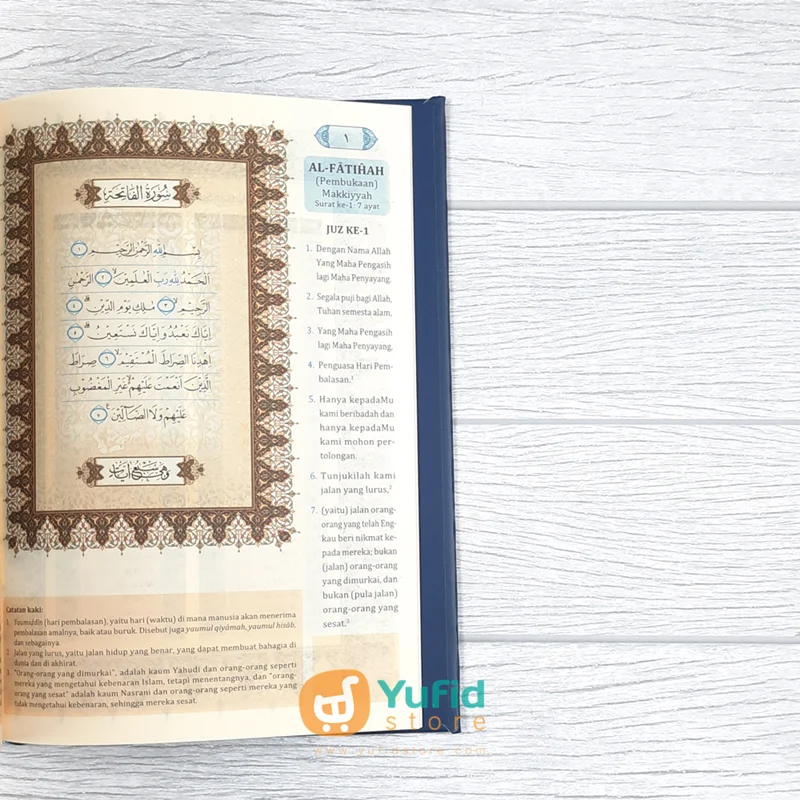 سُورَةُ الْفَاتِحَةِ
بِسْمِ اللّٰهِ الرَّحْمٰنِ الرَّحِيْمِ ١
اَلْحَمْدُ لِلّٰهِ رَبِّ الْعٰلَمِيْنَۙ ٢ الرَّحْمٰنِ
الرَّحِيْمِۙ ٣ مٰلِكِ يَوْمِ الدِّيْنِۗ ٤
اِيَّاكَ نَعْبُدُ وَاِيَّاكَ نَسْتَعِيْنُۗ ٥
اِهْدِنَا الصِّرَاطَ الْمُسْتَقِيْمَۙ ٦ صِرَاطَ
الَّذِيْنَ اَنْعَمْتَ عَلَيْهِمْ ەۙ غَيْرِ الْمَغْضُوْبِ
عَلَيْهِمْ وَلَا الضَّاۤلِّيْنَࣖ ٧
وَهِيَ سَبْعُ اٰيَاتٍ
١
AL-FĀTIĤAH
(Pembukaan)
Makkiyyah
Surat ke-1: 7 ayat
JUZ KE-1
1. Dengan Nama Allah
Yang Maha Pengasih
lagi Maha Penyayang.
2. Segala puji bagi Allah,
Tuhan semesta alam,
3. Yang Maha Pengasih
lagi Maha Penyayang,
4. Penguasa Hari Pem-
balasan.¹
5. Hanya kepadaMu
kami beribadah dan
hanya kepadaMu
kami mohon per-
tolongan.
6. Tunjukilah kami
jalan yang lurus,²
7. (yaitu) jalan orang-
orang yang telah Eng-
kau beri nikmat ke-
pada mereka; bukan
(jalan) orang-orang
yang dimurkai, dan
bukan (pula jalan)
orang-orang yang
sesat.³
Catatan kaki:
1. Yaumiddīn (hari pembalasan), yaitu hari (waktu) di mana manusia akan menerima
pembalasan amalnya, baik atau buruk. Disebut juga yaumul qiyāmah, yaumul hisāb,
dan sebagainya.
2. Jalan yang lurus, yaitu jalan hidup yang benar, yang dapat membuat bahagia di
dunia dan di akhirat.
3. "Orang-orang yang dimurkai", adalah kaum Yahudi dan orang-orang seperti
mereka yang mengetahui kebenaran Islam, tetapi menentangnya, dan "orang-
orang yang sesat" adalah kaum Nasrani dan orang-orang seperti mereka yang
tidak mengetahui kebenaran, sehingga mereka sesat.
Yufid
store
www.yufidstore.com